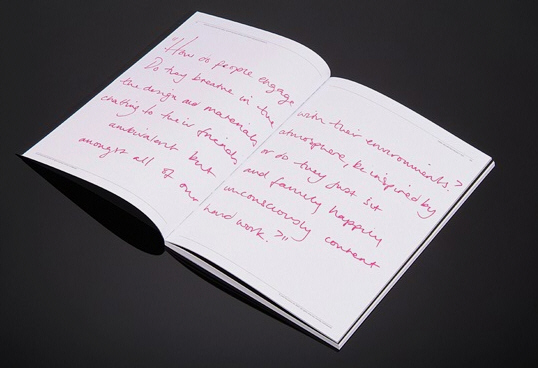 "How do people engage with their environments.?
Do they breathe in the atmosphere, be inspired by
the design and materials or do they just sit
chatting to their friends and family happily
ambivalent but unconsciously content
amongst all of our hard work.?"